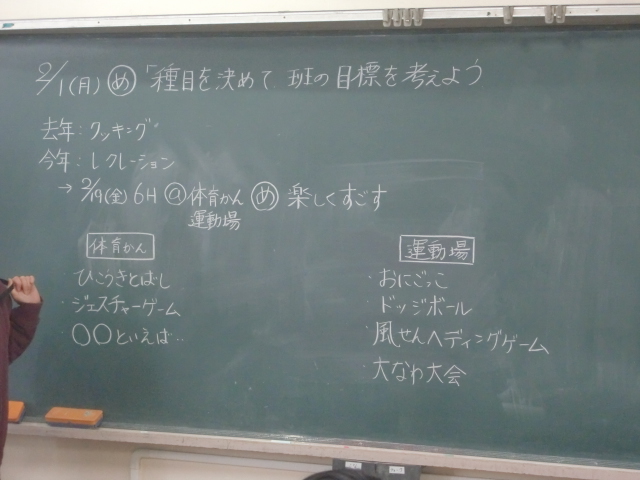 2/1(月) め 「種目を決めて 班の目標を考えよう
去年:クッキング
今年:レクレーション
→ 2/19(金) 6H @体育かん め 楽しくすごす
運動場
体育かん
ひこうきとばし
・ジェスチャーゲーム
・〇〇といえば‥
運動場
・おにごっこ
・ドッジボール
・風せんヘディングゲーム
・大なわ大会